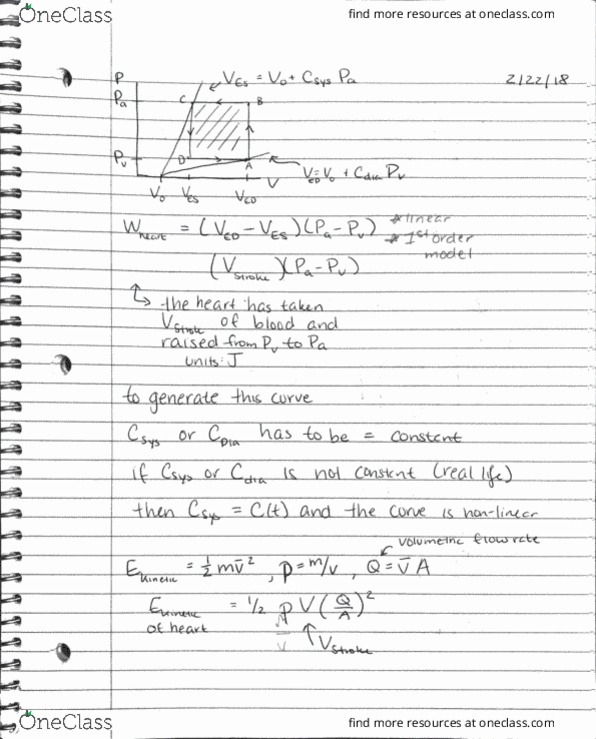 OneClass find more resources at oneclass.com
2/22/18
P
V_ES = V_0 + C_sys P_a
P_a
C
B
P_v
D
A
V_ED = V_0 + C_dia P_v
V_0 V_ES V_ED V
W_heart = (V_ED - V_ES)(P_a - P_v) * linear
* 1st order
model
(V_stroke)(P_a - P_v)
↳ the heart has taken
V_stroke of blood and
raised from P_v to P_a
units: J
to generate this curve
C_sys or C_Dia has to be = constant
if C_sys or C_dia is not constant (real life)
then C_sys = C(t) and the curve is non-linear
volumetric flow rate
E_kinetic = 1/2 m v̄², ρ = m/v, Q = v̄ A
E_kinetic = 1/2 ρ V (Q/A)²
of heart
V_stroke
OneClass find more resources at oneclass.com